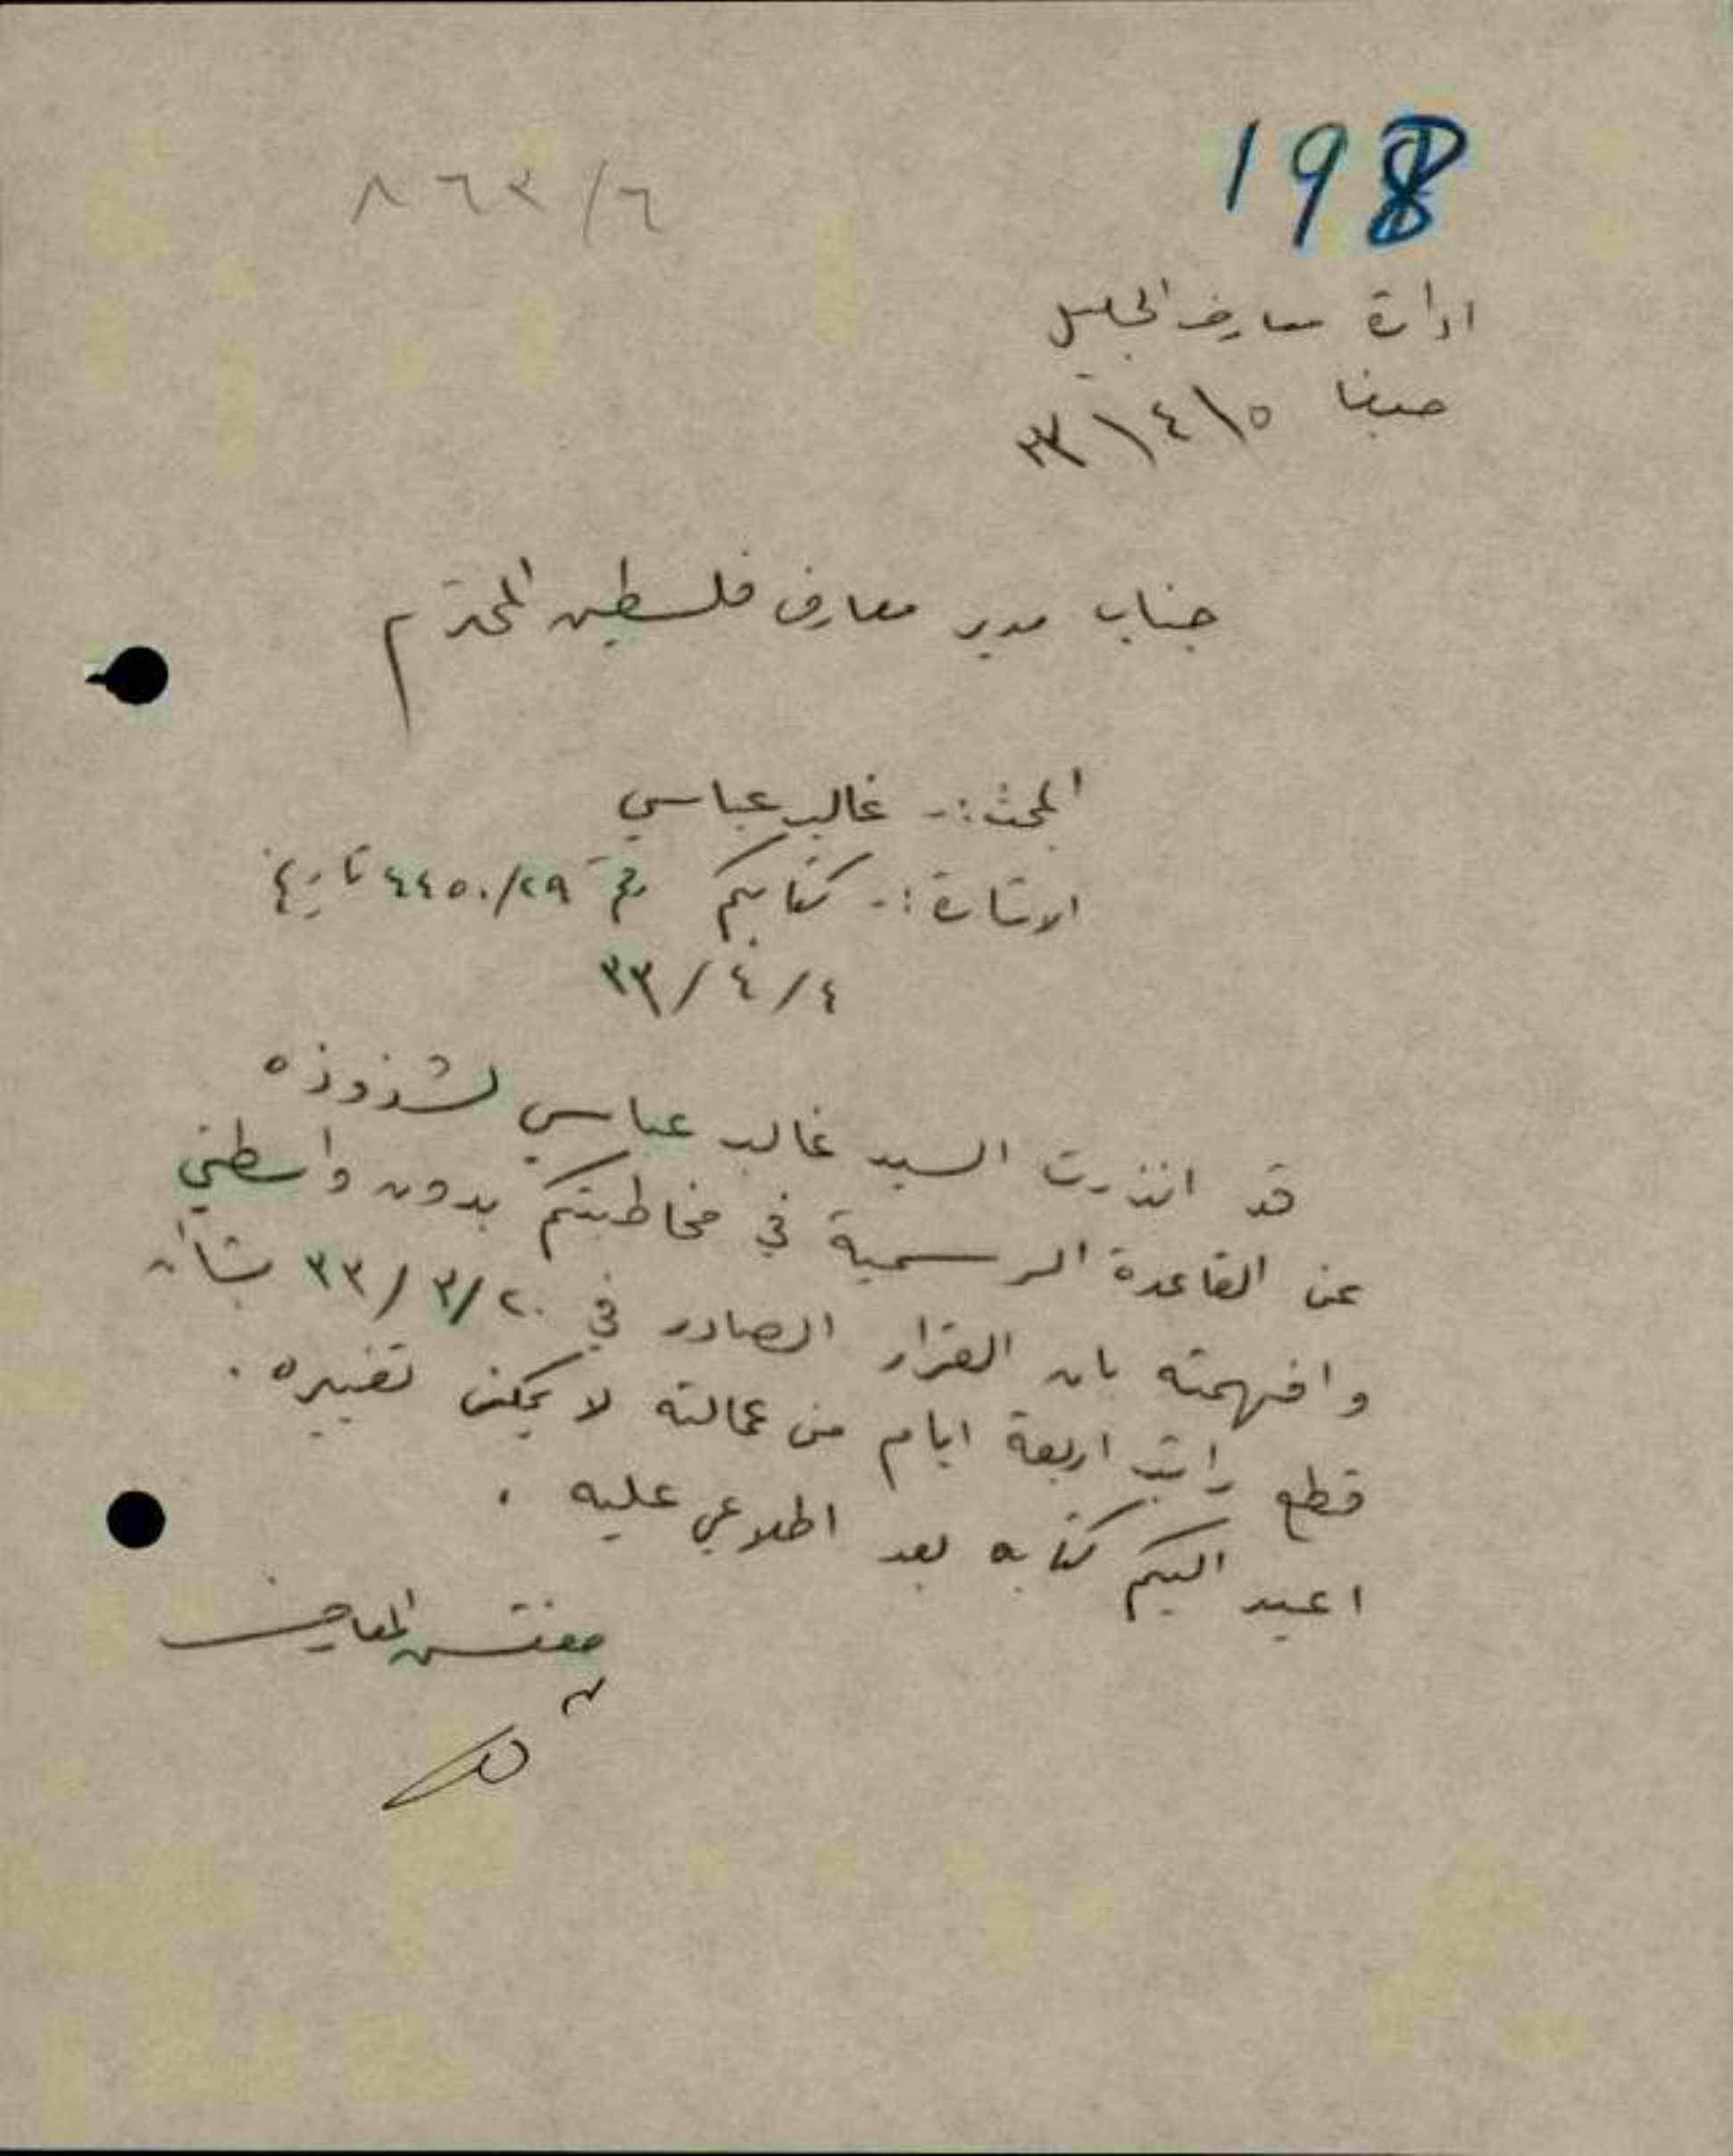 198
٨٦٣/٦
ادارة معارف الجليل
حيفا ٥\٤\٣٣
جناب مدير معارف فلسطين المحترم
المبحث :- غالب عباسي
الاشارة :- كتابكم رقم ٤٤٥٠/٢٩ تاريخ
٣٣/٤/٤
قد انذرت السيد غالب عباسي لشذوذه
عن القاعدة الرسمية في مخاطبتكم بدون واسطتي
وافهمته بان القرار الصادر في ٣٣/٣/٢٠ بشأن
قطع راتب اربعة ايام من عمالته لا يمكن تغييره .
اعيد اليكم كتابه بعد اطلاعي عليه .
مفتش المعارف